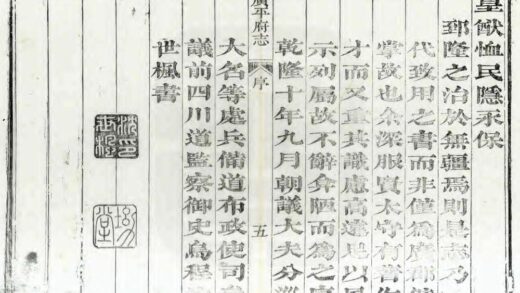 皇猷恤民隱永保
郅隆之治於無疆焉則是志乃
代致用之書而非僅爲廣郡
掌故也余深服賈太守有
才而又重其識慮高遠足以
示列屬故不辭弇陋而爲之
乾隆十年九月朝議大夫分巡
廣平府志
序
五
大名等處兵備道布政使司
議前四川道監察御史烏程
世楓書
沈印世楓
坳堂